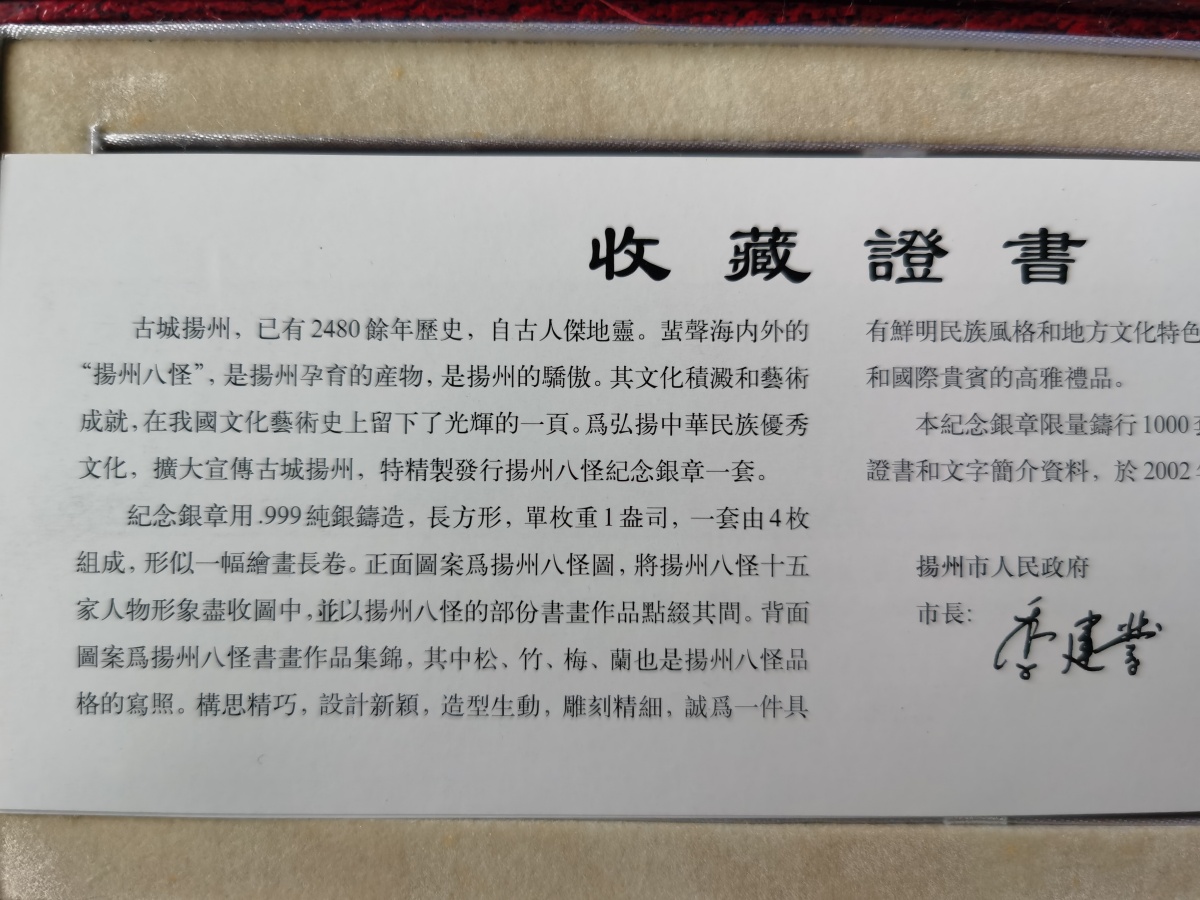 收藏證書
古城揚州，已有2480餘年歷史，自古人傑地靈。蜚聲海内外的
“揚州八怪”，是揚州孕育的産物，是揚州的驕傲。其文化積澱和藝術
成就，在我國文化藝術史上留下了光輝的一頁。爲弘揚中華民族優秀
文化，擴大宣傳古城揚州，特精製發行揚州八怪紀念銀章一套。
紀念銀章用.999純銀鑄造，長方形，單枚重1盎司，一套由4枚
組成，形似一幅繪畫長卷。正面圖案爲揚州八怪圖，將揚州八怪十五
家人物形象盡收圖中，並以揚州八怪的部份書畫作品點綴其間。背面
圖案爲揚州八怪書畫作品集錦，其中松、竹、梅、蘭也是揚州八怪品
格的寫照。構思精巧，設計新穎，造型生動，雕刻精細，誠爲一件具
有鮮明民族風格和地方文化特色
和國際貴賓的高雅禮品。
本紀念銀章限量鑄行1000
證書和文字簡介資料，於2002
揚州市人民政府
市長：季建業